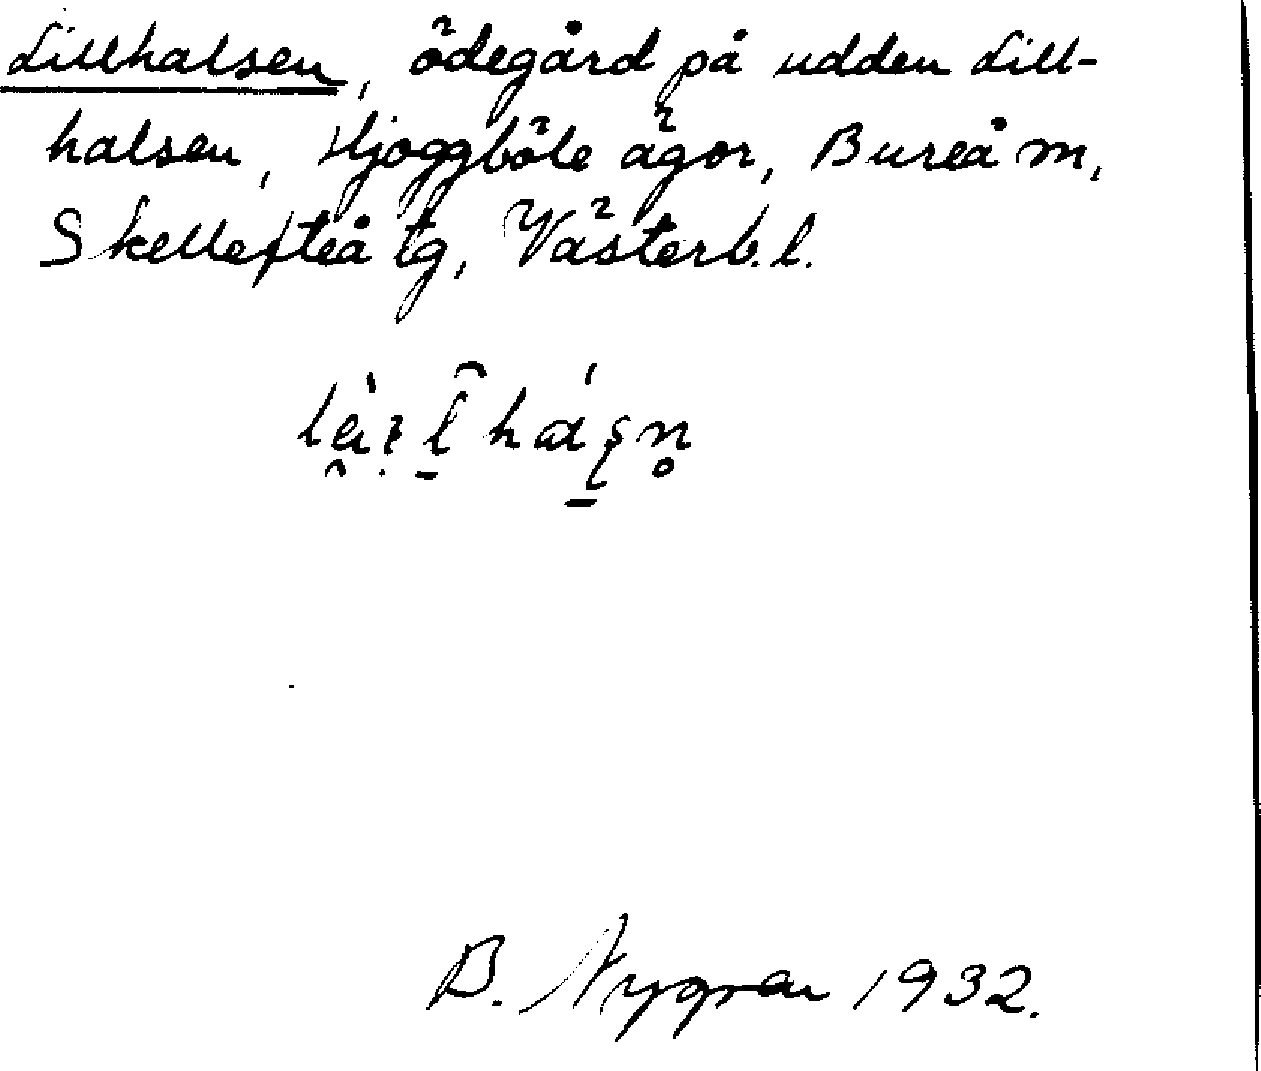 Lillhalsen, ödegård på udden Lill-
halsen, Hjoggböle ägor, Bureå m,
Skellefteå tg, Västerb. l.
B. Nygren 1932.